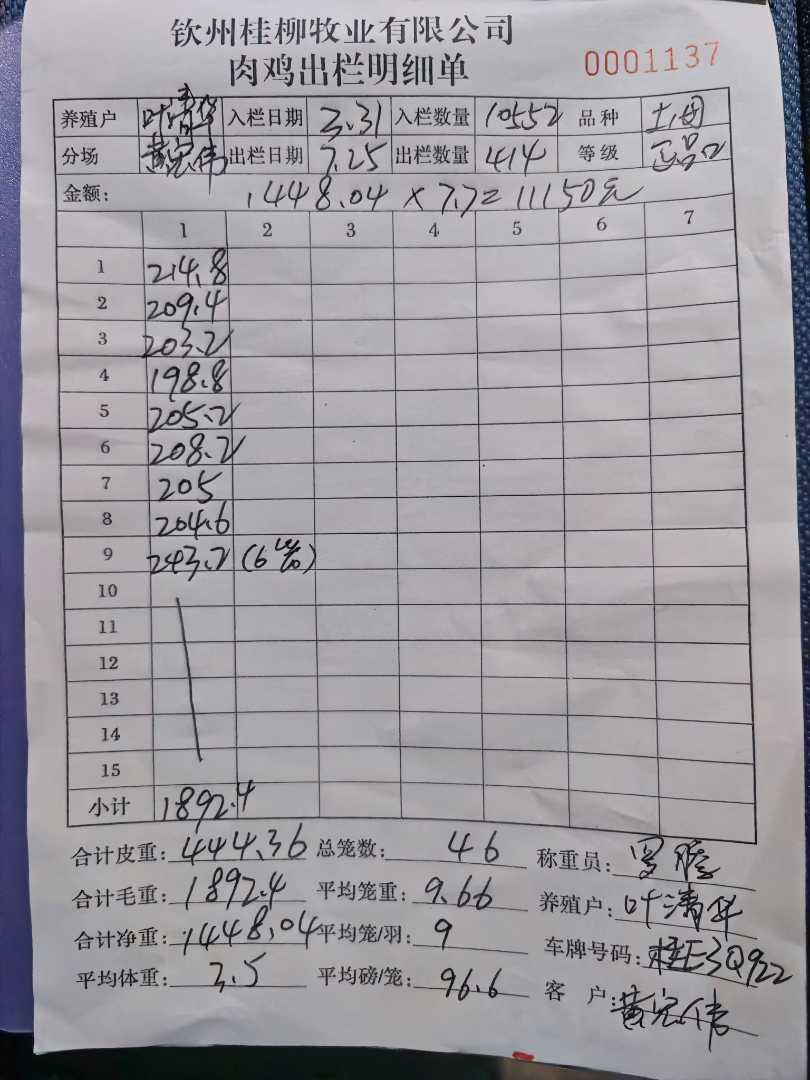 钦州桂柳牧业有限公司
肉鸡出栏明细单 0001137
养殖户 叶清华 入栏日期 3.31 入栏数量 10552 品种
分场 黄宏伟 出栏日期 7.25 出栏数量 414 等级 正品口
金额: 1448.04 × 7.7= 11150元
1 2 3 4 5 6 7
1 214.8
2 209.4
3 203.2
4 198.8
5 205.2
6 208.2
7 205
8 204.6
9 243.2 (6笼)
10
11
12
13
14
15
小计 1892.4
合计皮重: 444.36 总笼数: 46 称重员:
合计毛重: 1892.4 平均笼重: 9.66 养殖户: 叶清华
合计净重: 1448.04 平均笼/羽: 9 车牌号码: 桂E3Q922
平均体重: 3.5 平均磅/笼: 96.6 客 户: 黄宏伟